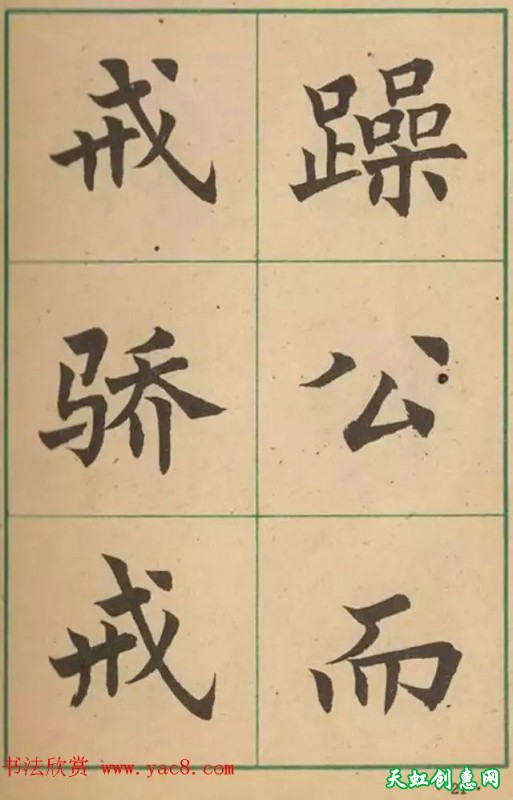 躁公而
戒骄戒
书法欣赏 www.yac8.com
天虹创惠网
21